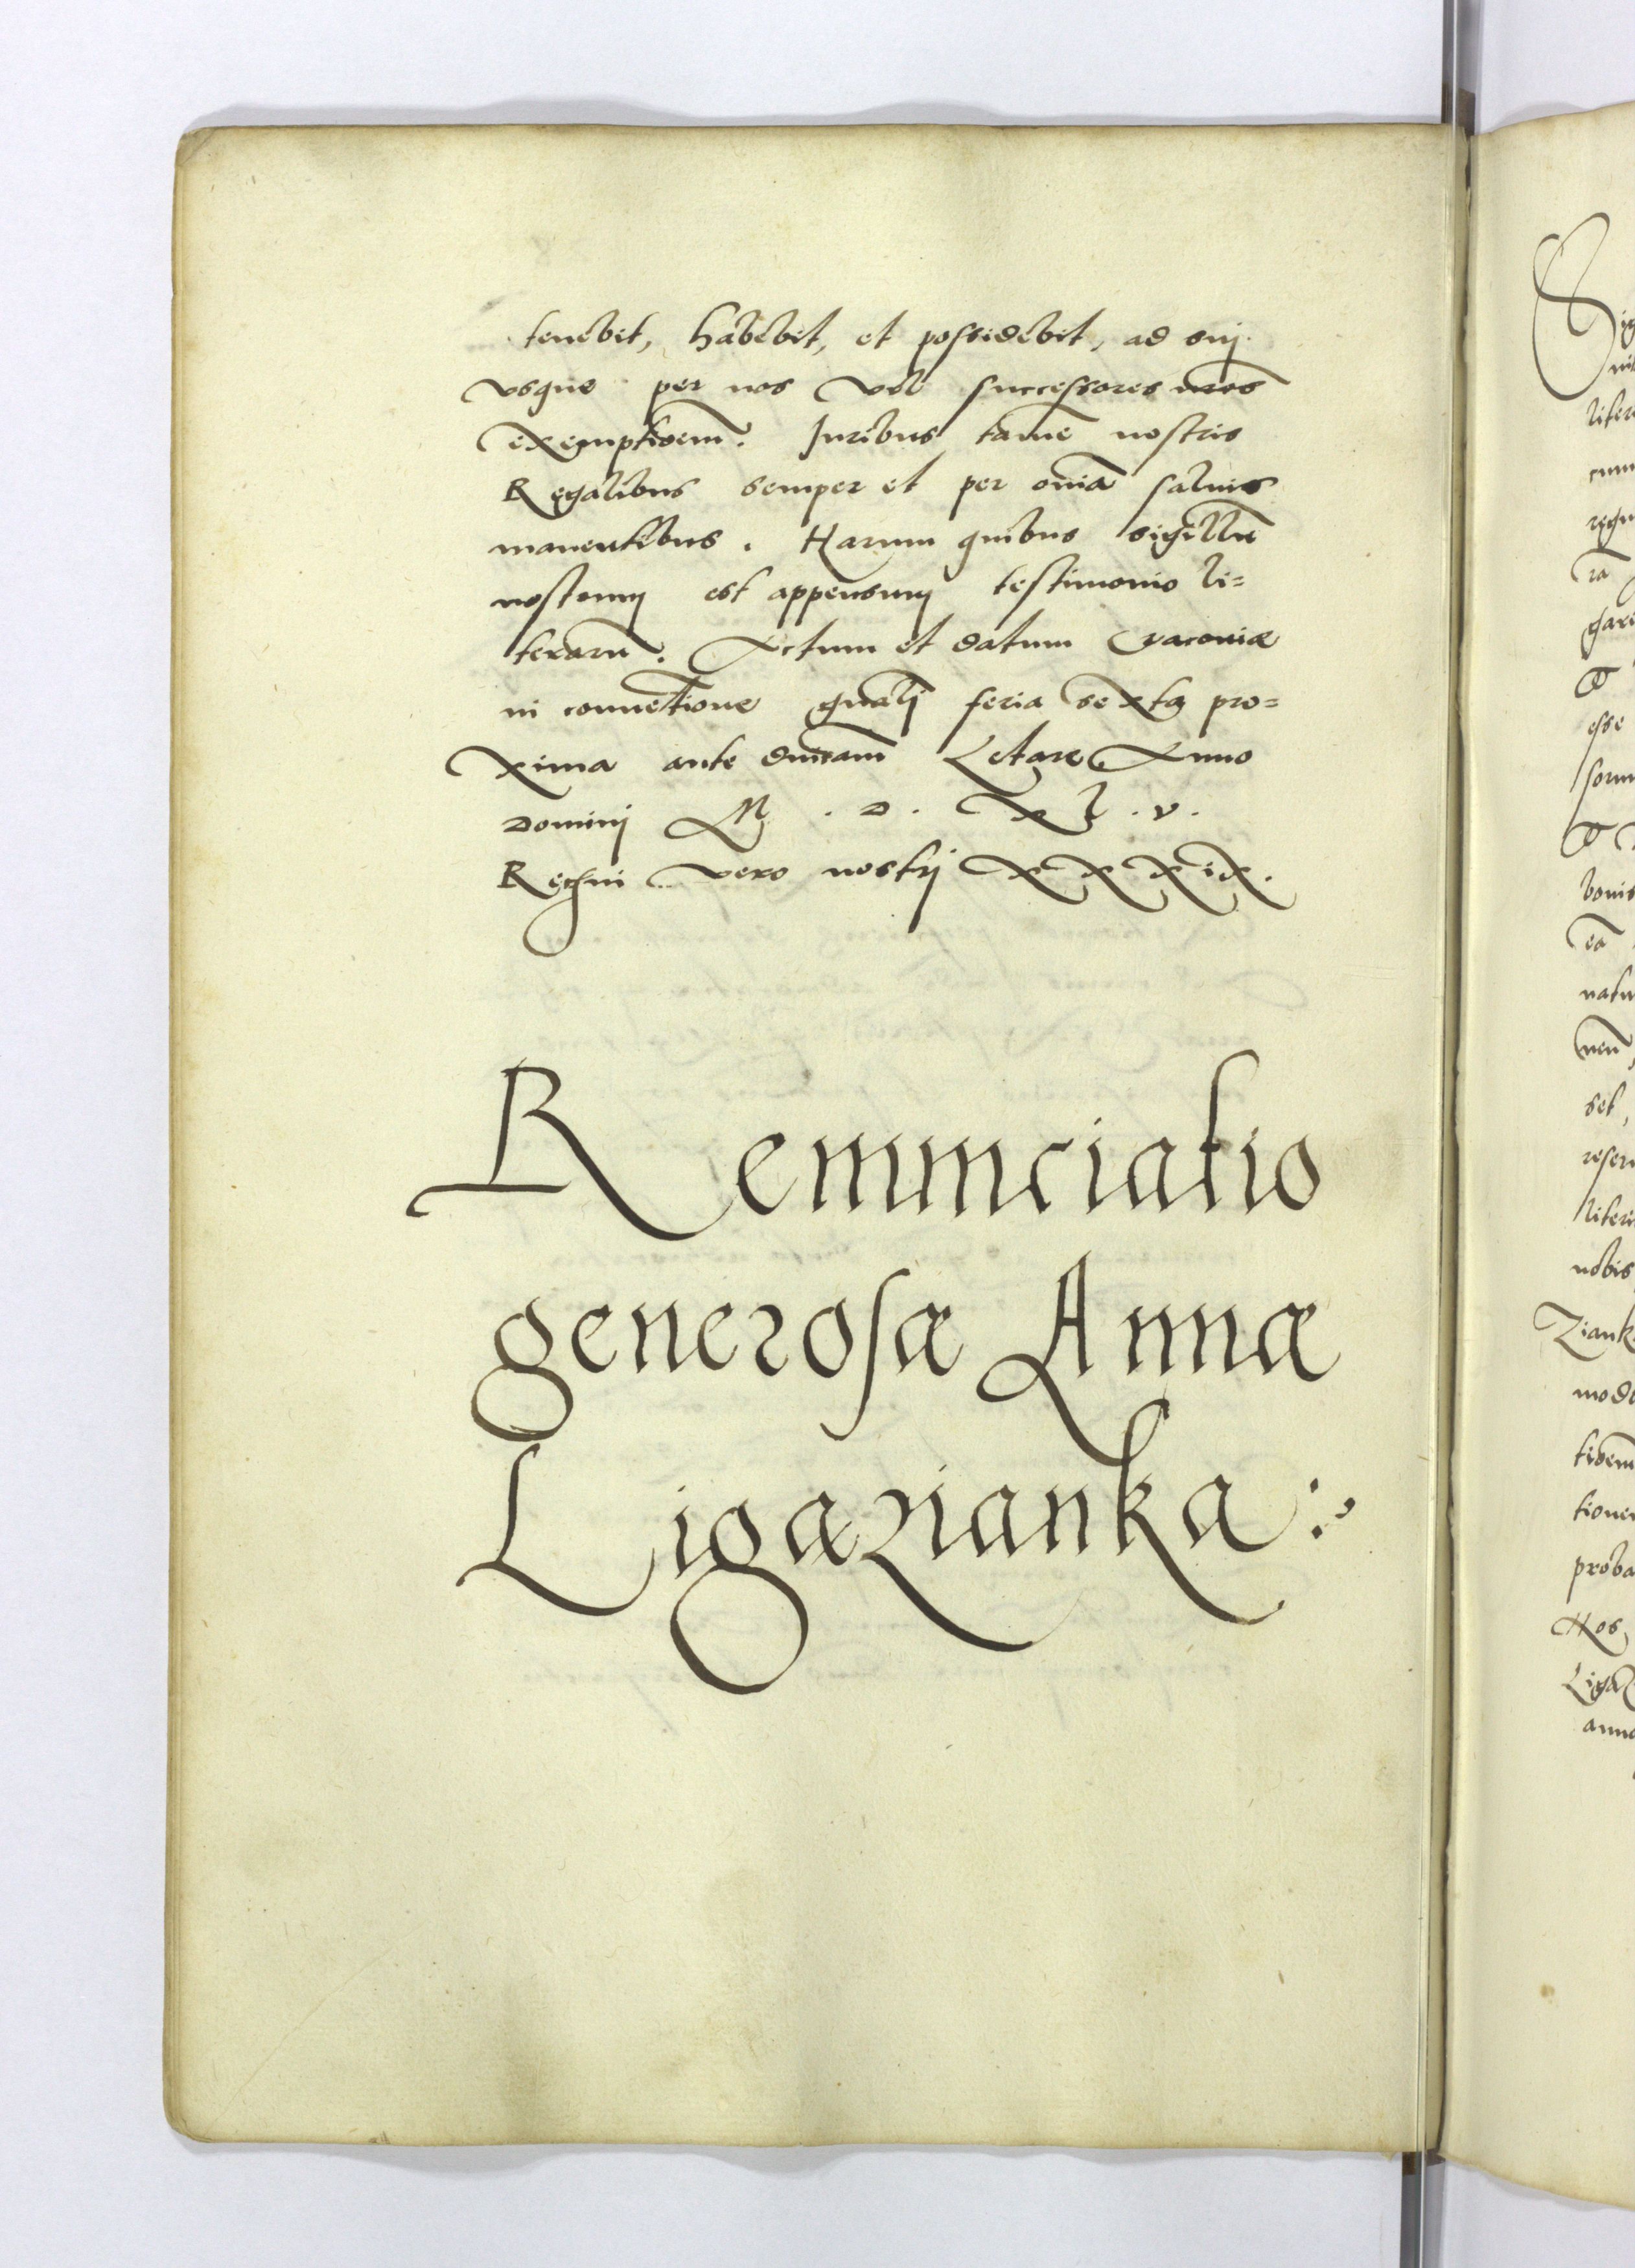 tenebit, habebit, et possidebit, ad suj
vsque per nos vel successores nros
exemptioem. Juribus tame nostris
Regalibus semper et per oīa saluis
manentibus. Harum quibus sigillū
nostrum est appensum testimonio li=
terarū. Actum et datum Cracoviæ
in conuētione gnālj feria sexta pro=
xima ante dnīcam Letare Anno
Dominj M . D . XL . V .
Regni vero nostrj XXXIX .
Renunciatio
generosæ Annæ
Ligæzianka :
Sig
liter
cum
regn
ra
gare
esse
bonis
ea
natu
nem
set,
reser
literi
nobis
Zianka
modo
tioem
tione
proba
Nos
Ligæ
anno